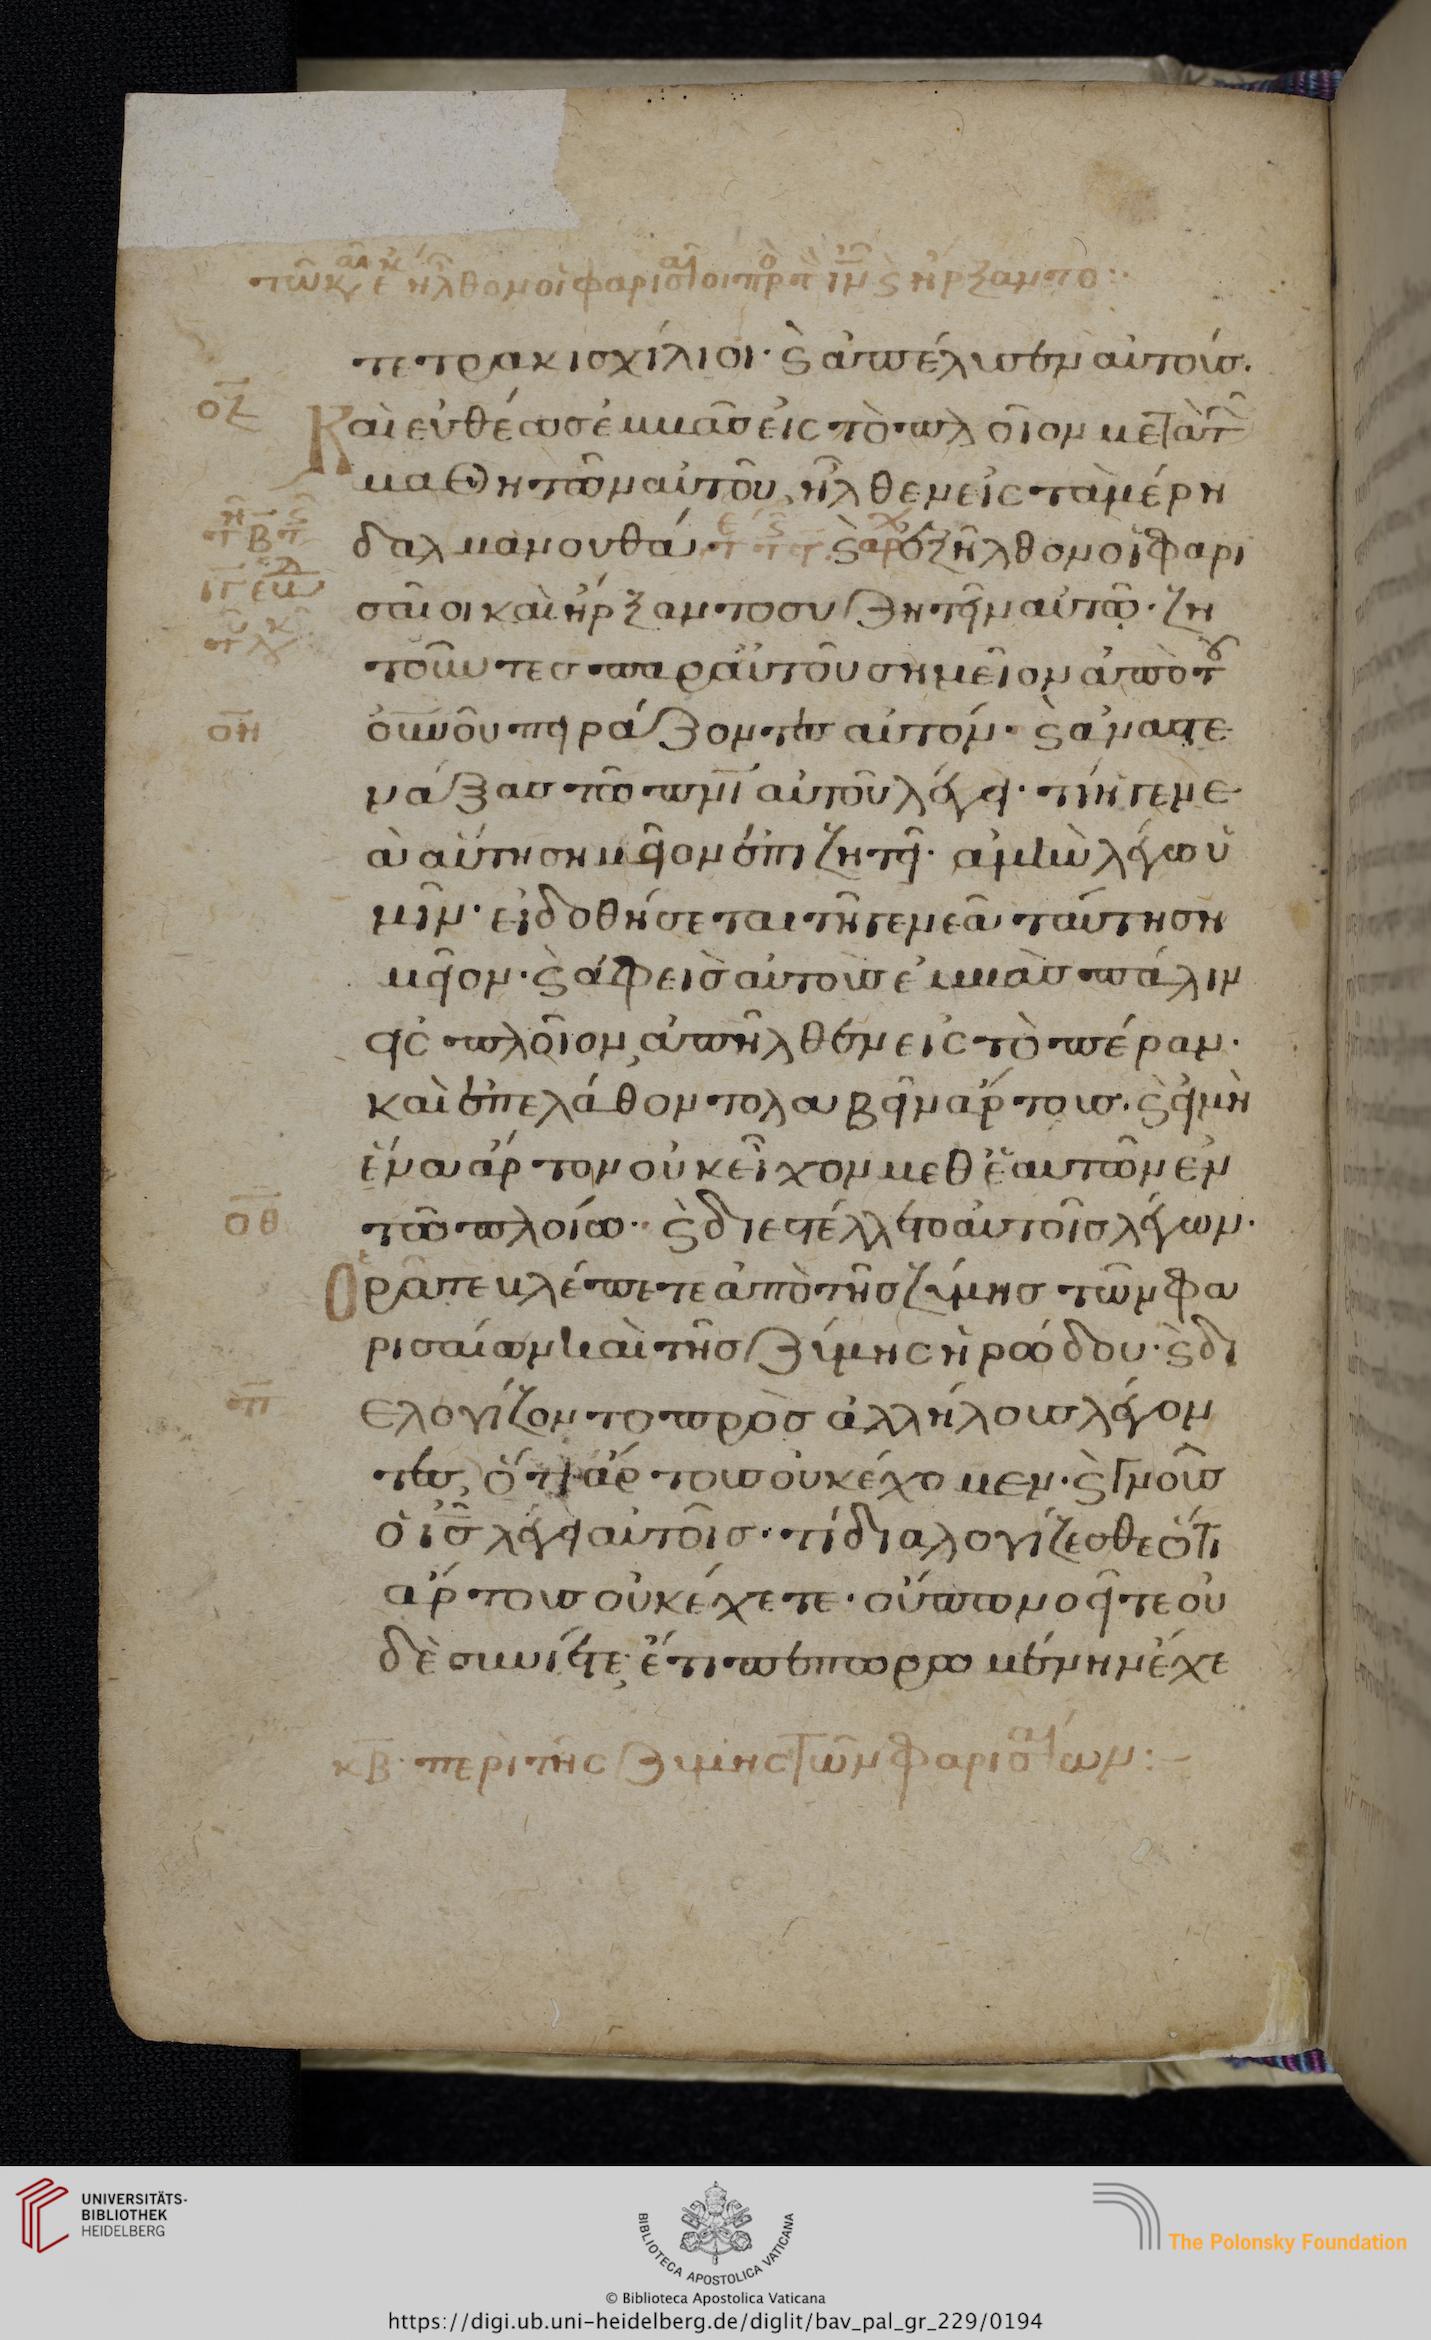 τετρακισχίλιοι· ϛ ἀπέλυσεν αὐτούσ.
οζ
Καὶ εὐθέωσ ἐμβὰσ εἰς τὸ πλοῖον μετὰ τ
μαθητῶν αὐτοῦ, ἦλθεν εἰς τὰ μέρη
δαλμανουθά· ϛ ἐξῆλθον οἱ φαρι
σαῖοι καὶ ἤρξαντο συζητεῖν αὐτῷ· ζη
τοῦντεσ παρ αὐτοῦ σημεῖον ἀπὸ τοῦ
οη
οὐνοῦ πειράζοντεσ αὐτόν· ϛ ἀναστε
νάξασ τῶ πνὶ αὐτοῦ λέγει· τί ἡ γενε
ὰ αὕτη σημεῖον ἐπιζητεῖ· ἀμὴν λέγω ὑ
μῖν· εἰ δοθήσεται τῆ γενεᾶ ταύτη ση
μεῖον· ϛ ἀφεὶσ αὐτοὺσ ἐμβὰσ πάλιν
εἰς πλοῖον, ἀπῆλθεν εἰς τὸ πέραν·
καὶ ἐπελάθοντο λαβεῖν ἄρτουσ· ϛ εἰ μὴ
ἕνα ἄρτον οὐκ εἶχον μεθ ἑαυτῶν ἐν
οθ
τῶ πλοίω· ϛ διεστέλλετο αὐτοῖσ λέγων·
Ὁρᾶτε βλέπετε ἀπὸ τῆσ ζύμησ τῶν φα
ρισαίων καὶ τῆσ ζύμης ἡρώδου· ϛ δι
π
ελογίζοντο πρὸσ ἀλλήλουσ λέγον
τεσ, ὅτι ἄρτουσ οὐκ ἔχομεν· ϛ γνοὺσ
ὁ ισ λέγει αὐτοῖσ· τί διαλογίζεσθε ὅτι
ἄρτουσ οὐκ ἔχετε· οὔπω νοεῖτε οὐ
δὲ συνίετε, ἔτι πεπωρωμένην ἔχε
κβ· περὶ τῆς ζύμης τῶν φαρισαίων:–
UNIVERSITÄTS-
BIBLIOTHEK
HEIDELBERG
BIBLIOTECA APOSTOLICA VATICANA
The Polonsky Foundation
© Biblioteca Apostolica Vaticana
https://digi.ub.uni-heidelberg.de/diglit/bav_pal_gr_229/0194